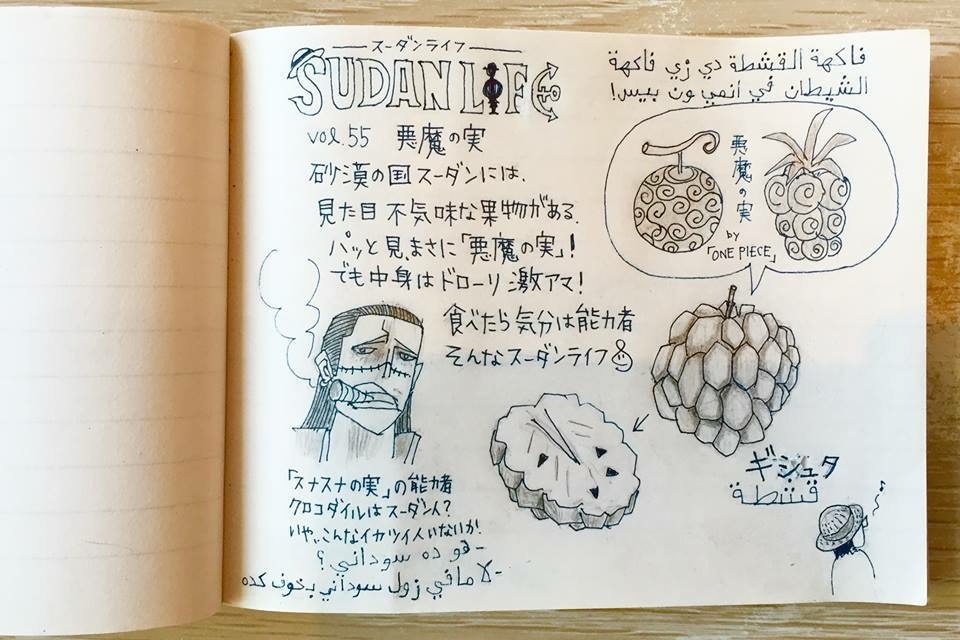 スーダンライフ
SUDAN LIFE
فاكهة القشطة دي زي فاكهة
الشيطان في انمي ون بيس!
vol.55 悪魔の実
砂漠の国スーダンには、
見た目不気味な果物がある。
パッと見、まさに「悪魔の実」!
でも中身はドローリ激アマ!
食べたら気分は能力者
そんなスーダンライフ
悪魔の実
by
「ONE PIECE」
ギシュタ
قشطة
「スナスナの実」の能力者
クロコダイルはスーダン人?
いや、こんなイカツイ人いないか!
-هو ده سوداني؟
-لا مافي زول سوداني بخوف كده